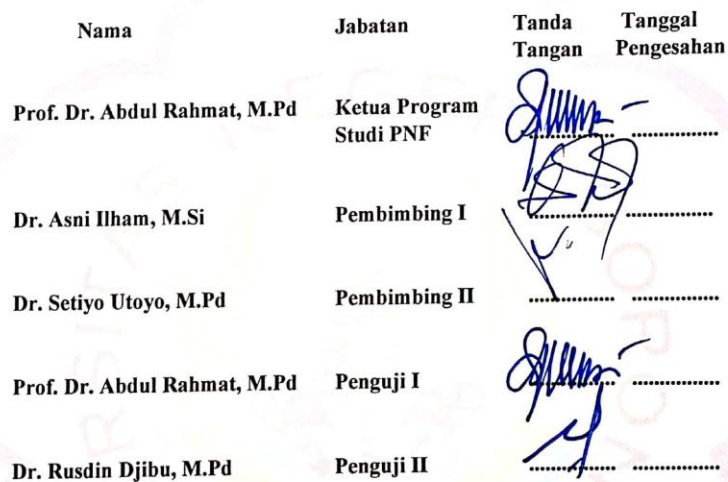 Nama Jabatan Tanda Tangan Tanggal Pengesahan
Prof. Dr. Abdul Rahmat, M.Pd Ketua Program Studi PNF ............... ...............
Dr. Asni Ilham, M.Si Pembimbing I ............... ...............
Dr. Setiyo Utoyo, M.Pd Pembimbing II ............... ...............
Prof. Dr. Abdul Rahmat, M.Pd Penguji I ............... ...............
Dr. Rusdin Djibu, M.Pd Penguji II ............... ...............